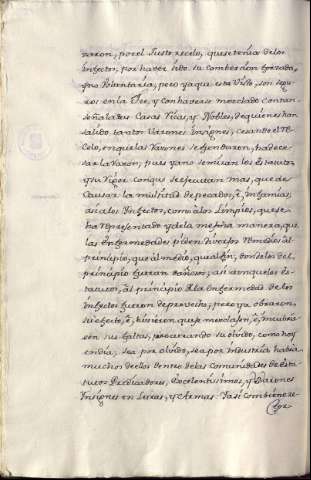 naron, por el Justo recelo, que se tenia de los
infectos, por haver sido su combersion forzada,
y no Voluntaria; pero ya que esta Visto, son segu
ros en la Fee, y con haverse mezclado con tan
señalates Casas Ricas, y Nobles, de quienes han
salido tantos Varones Insignes, cesando el Re
celo, en que las Razones se fundaron, ha de ce
sar la razon; pues ya no se miran los Estatutos
y su Vigor con que se executan mas, que de
Causar la multitud de pecados, è, infamias;
asi a los Infectos, como a los Limpios, que se
ha representado y de la mesma manera, que
las enfermedades piden diversos remedios al
principio, que al medio, que al fin, donde los del
principio fueran dañosos; asi aunque los Es-
tatutos, al principio de la enfermedad de los
infectos fueron de provecho, pero ya obraron,
su efecto, è, hicieron, que se mezclasen, è, encubrie
sen sus faltas, procurando su olvido, como hoy
en dia, sea por olvido, sea por industria havia
muchos dellos dentro de las Comunidades de Esta-
tutos Predicadores, Excelentisimos, y Varones
Insignes en Letras, y Armas. Y asi combiene re-